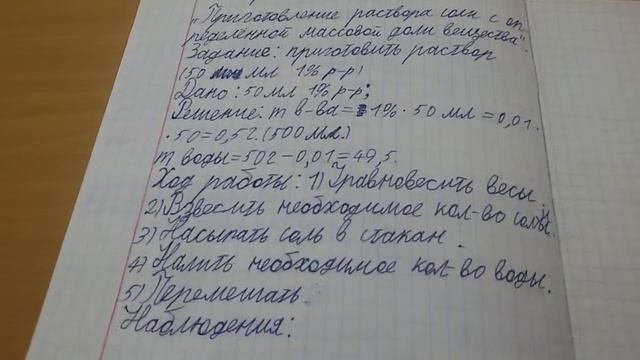 "Приготовление раствора соли с оп-
ределённой массовой доли вещества".
Задание: приготовить раствор
(50 мл 1% р-р)
Дано: 50 мл 1% р-р;
Решение: m в-ва = 1% · 50 мл = 0,01 ·
· 50 = 0,5 г. (500 мл.)
m воды = 50г - 0,01 = 49,5.
Ход работы: 1) Уравновесить весы.
2) Взвесить необходимое кол-во соли.
3) Насыпать соль в стакан.
4) Налить необходимое кол-во воды.
5) Перемешать.
Наблюдения: